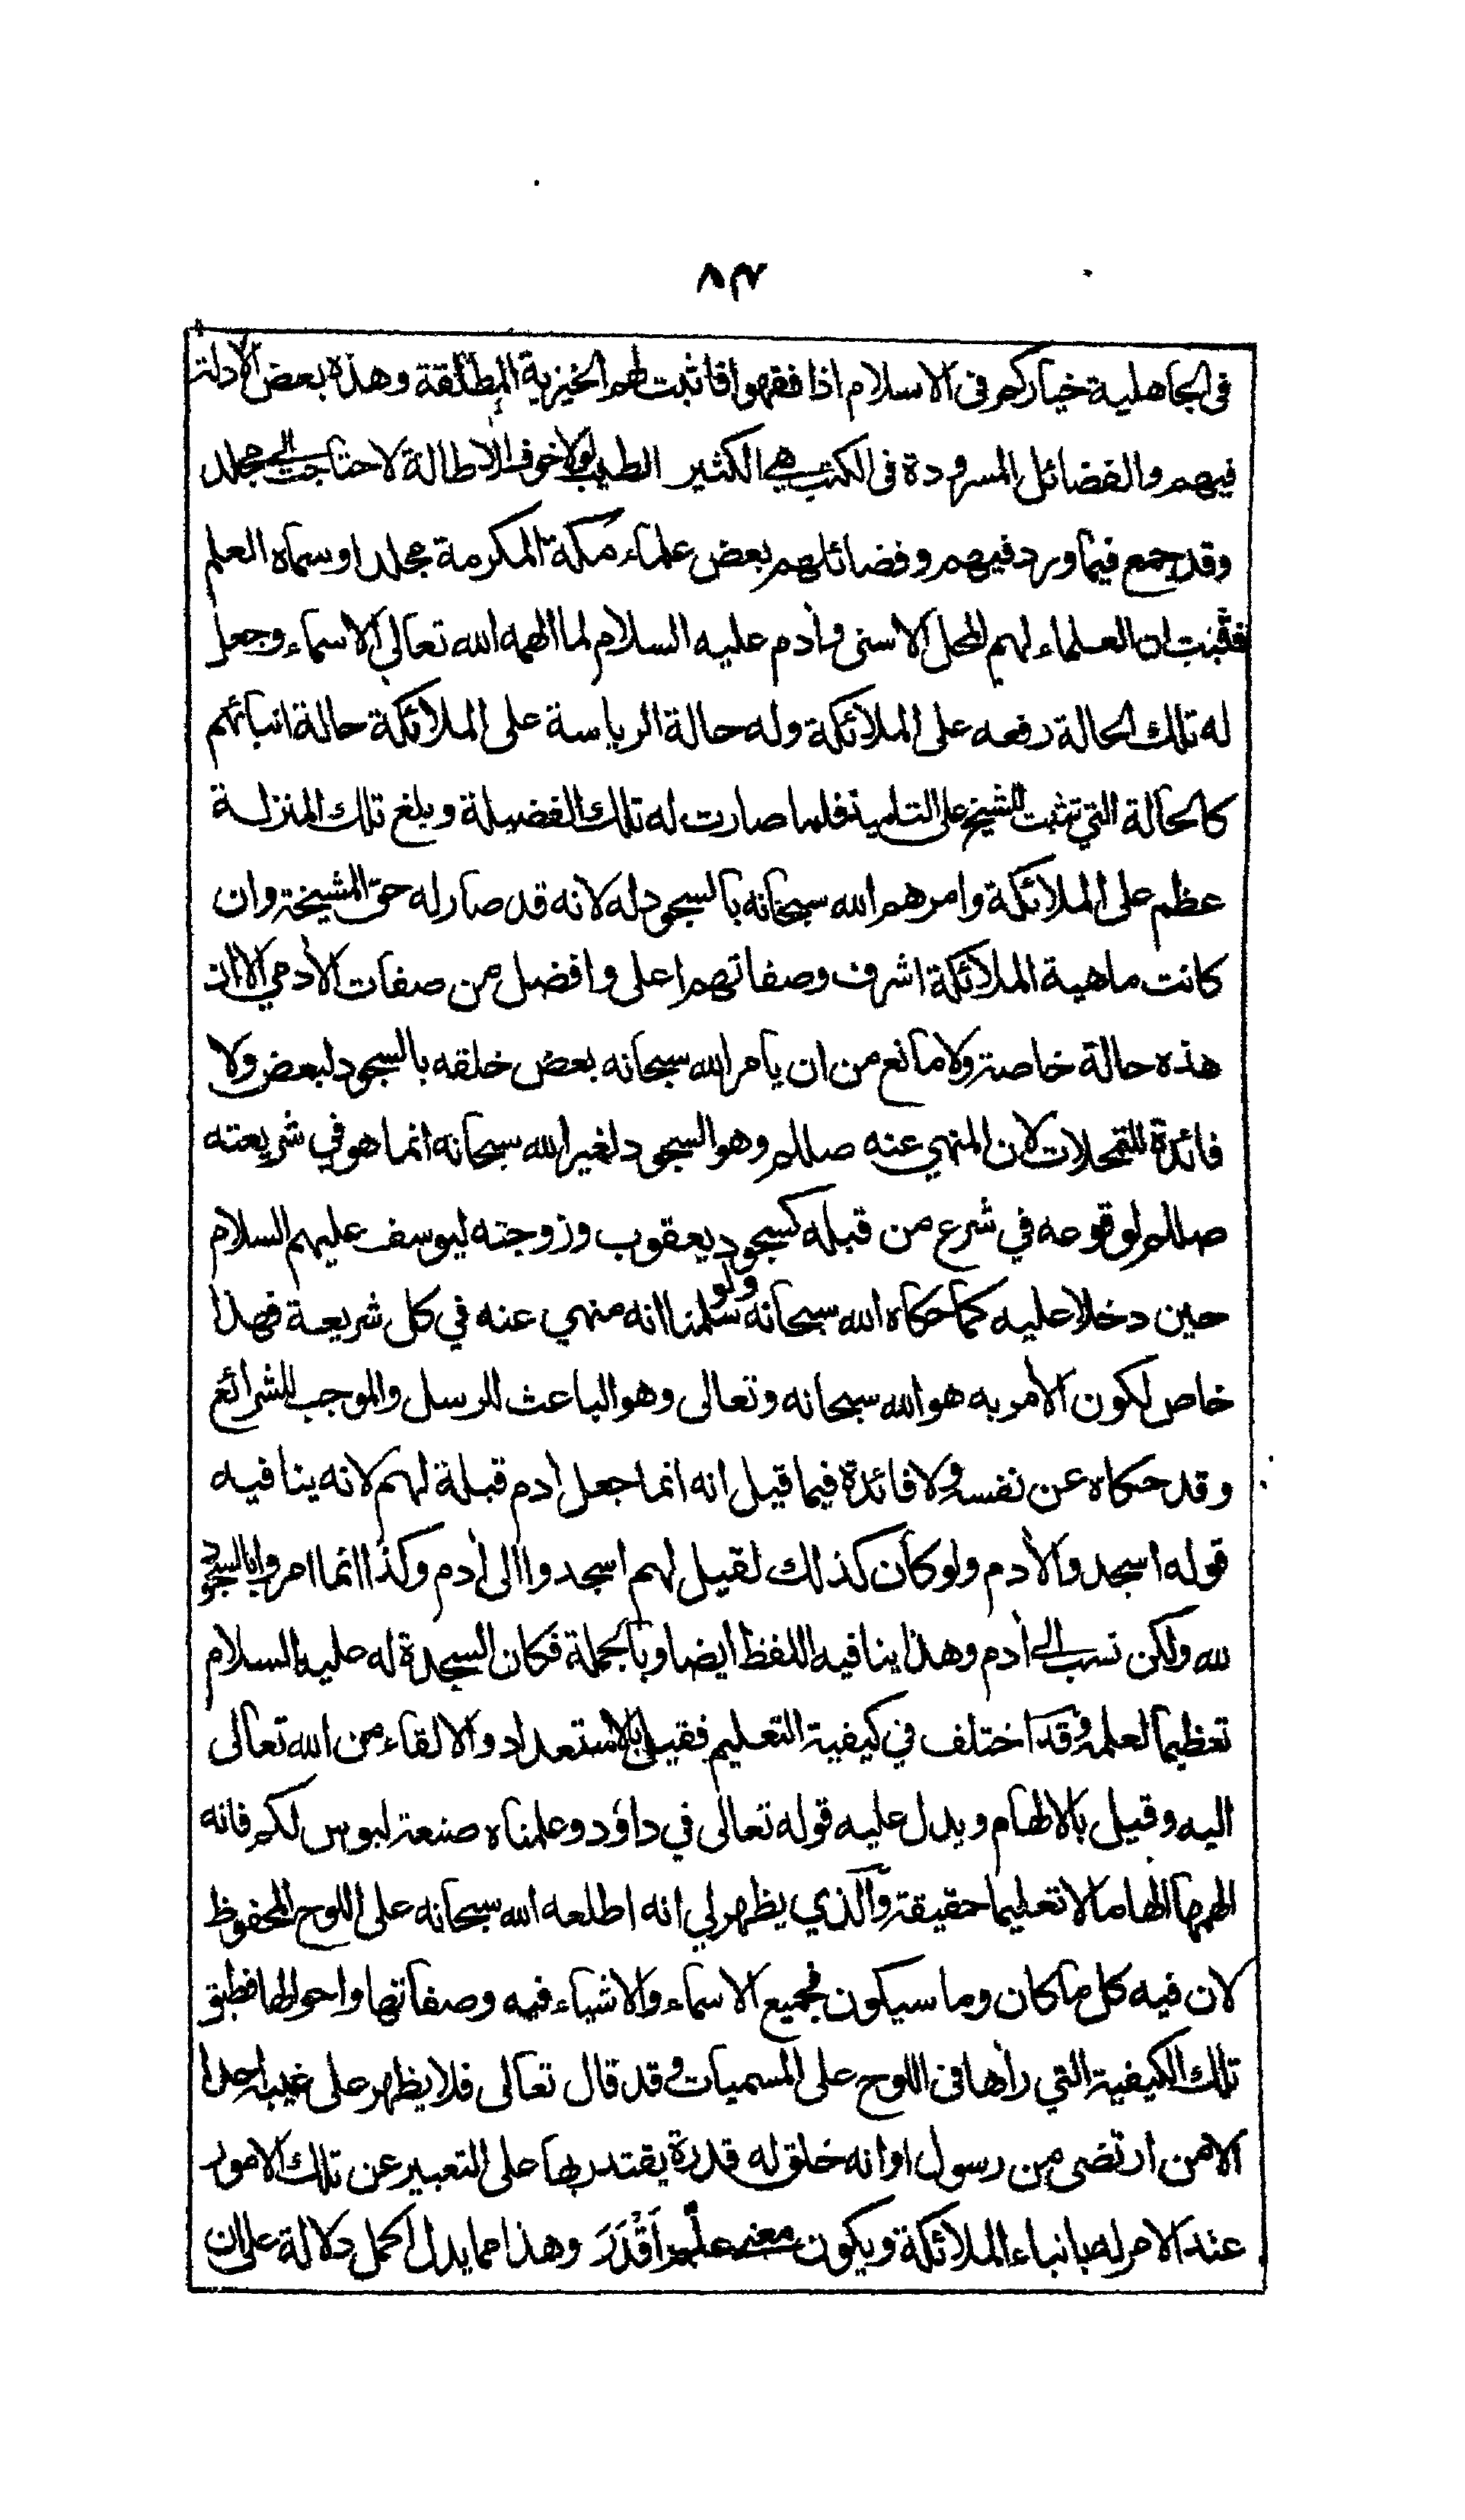 ٨٣
في الجاهلية خياركم في الاسلام اذا فقهوا فاثبت لهم الخيرية المطلقة وهذه بعض الادلة
فيهم والفضائل المسرودة في الكتب هي الكثير الطيب لولا خوف الاطالة لاحتاجت الى مجلد
وقد جمع فيما ورد فيهم وفضائلهم بعض علماء مكة المكرمة مجلدا وسماه العلم
فثبت ان العلماء لهم المحل الاسنى وأدم عليه السلام لما الهمه الله تعالى الاسماء وجعل
له تلك الحالة رفعه على الملائكة وله حالة الرياسة على الملائكة حالة انبائهم
كالحالة التي تثبت للشيخ على التلميذ فلما صارت له تلك الفضيلة وبلغ تلك المنزلة
عظم على الملائكة وامرهم الله سبحانه بالسجود له لانه قد صار له حق المشيخة وان
كانت ماهية الملائكة اشرف وصفاتهم اعلى وافضل من صفات الأدمي الا ان
هذه حالة خاصة ولا مانع من ان يامر الله سبحانه بعض خلقه بالسجود لبعض ولا
فائدة للتمحلات لان المنهي عنه صللم وهو السجود لغير الله سبحانه انما هو في شريعته
صللم لوقوعه في شرع من قبله كسجود يعقوب وزوجته ليوسف عليهم السلام
حين دخلا عليه كما حكاه الله سبحانه ولو سلمنا انه منهي عنه في كل شريعة فهذا
خاص لكون الأمر به هو الله سبحانه وتعالى وهو الباعث للرسل والموجب للشرائع
وقد حكاه عن نفسه ولا فائدة فيما قيل انه انما جعل ادم قبلة لهم لانه ينافيه
قوله اسجدوا لأدم ولو كان كذلك لقيل لهم اسجدوا الى أدم وكذا انما امروا بالسجود
لله ولكن نسب الى أدم وهذا ينافيه اللفظ ايضا وبالجملة فكان السجدة له عليه السلام
تعظيما لعلمه وقد اختلف في كيفية التعليم فقيل بالاستعداد والالقاء من الله تعالى
اليه وقيل بالالهام ويدل عليه قوله تعالى في داؤد وعلمناه صنعة لبوس لكم فانه
الهمها الهاما لا تعليما حقيقة والذي يظهر لي انه اطلعه الله سبحانه على اللوح المحفوظ
لان فيه كل ما كان وما سيكون فجميع الاسماء والاشياء فيه وصفاتها واحوالها فطبق
تلك الكيفية التي رأها في اللوح على المسميات وقد قال تعالى فلا يظهر على غيبه احدا
الا من ارتضى من رسول اوانه خلق له قدرة يقتدر بها على التعبير عن تلك الامور
عند الامر له بانباء الملائكة ويكون معنى علم اَقْدَرَ وهذا مما يدل اكمل دلالة على ان